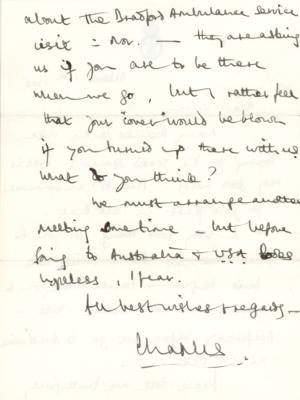 about the Bradford Ambulance service
visit in Nov. — they are asking
us if you are to be there
when we go, but I rather feel
that your 'cover' would be blown
if you turned up there with us.
What do you think?
We must arrange another
meeting sometime — but before
going to Australia & USA looks
hopeless, I fear.
All best wishes & regards —
Charles